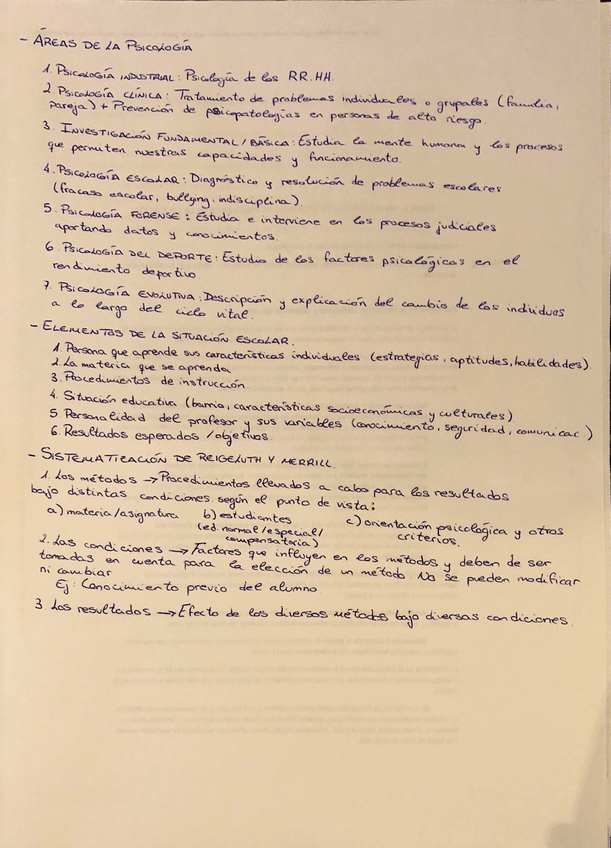 - ÁREAS DE LA PSICOLOGÍA
1. PSICOLOGÍA INDUSTRIAL: Psicología de los RR.HH.
2. PSICOLOGÍA CLÍNICA: Tratamiento de problemas individuales o grupales (familia,
pareja) + Prevención de psicopatologías en personas de alto riesgo.
3. INVESTIGACIÓN FUNDAMENTAL/BÁSICA: Estudia la mente humana y los procesos
que permiten nuestras capacidades y funcionamiento.
4. PSICOLOGÍA ESCOLAR: Diagnóstico y resolución de problemas escolares
(fracaso escolar, bullying, indisciplina)
5. PSICOLOGÍA FORENSE: Estudia e interviene en los procesos judiciales
aportando datos y conocimientos.
6. PSICOLOGÍA DEL DEPORTE: Estudio de los factores psicológicos en el
rendimiento deportivo
7. PSICOLOGÍA EVOLUTIVA: Descripción y explicación del cambio de los individuos
a lo largo del ciclo vital.
- ELEMENTOS DE LA SITUACIÓN ESCOLAR.
1. Persona que aprende sus características individuales (estrategias, aptitudes, habilidades).
2. La materia que se aprende
3. Procedimientos de instrucción.
4. Situación educativa (barrio, características socioeconómicas y culturales)
5. Personalidad del profesor y sus variables (conocimiento, seguridad, comunicac.)
6. Resultados esperados/objetivos.
- SISTEMATIZACIÓN DE REIGELUTH Y MERRILL.
1. Los métodos → Procedimientos llevados a cabo para los resultados
bajo distintas condiciones según el punto de vista:
a) materia/asignatura b) estudiantes c) orientación psicológica y otros
(ed. normal/especial/ criterios.
compensatoria)
2. Las condiciones → Factores que influyen en los métodos y deben de ser
tomadas en cuenta para la elección de un método. No se pueden modificar
ni cambiar
Ej: Conocimiento previo del alumno
3 Los resultados → Efecto de los diversos métodos bajo diversas condiciones.